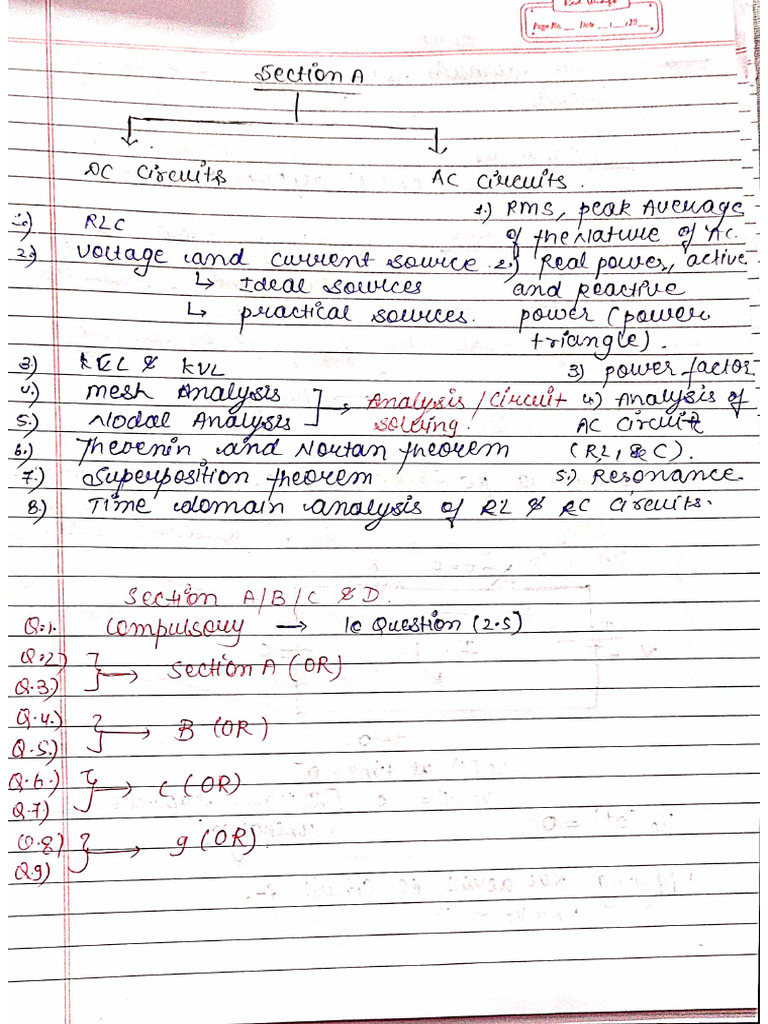 Page No. Date
Section A
DC Circuits
AC Circuits.
1.) RLC
2.) Voltage and current source
↳ Ideal sources
↳ practical sources.
3) KCL & KVL
4.) mesh Analysis
5.) Nodal Analysis
→ Analysis / Circuit
solving.
6.) Thevenin and Nortan theorem
7.) Superposition theorem
8.) Time domain analysis of RL & RC circuits.
1.) RMS, peak Average
of the Nature of AC.
2.) Real power, active
and Reactive
power (power
triangle).
3) power factor
4) Analysis of
AC Circuit
(RL, & C).
5.) Resonance
Section A/B/C & D.
Q.1. Compulsory → 10 Question (2.5)
Q.2)
Q.3.)
→ Section A (OR)
Q.4.)
Q.5.)
→ B (OR)
Q.6.)
Q.7)
→ C (OR)
Q.8)
Q.9)
→ g (OR)